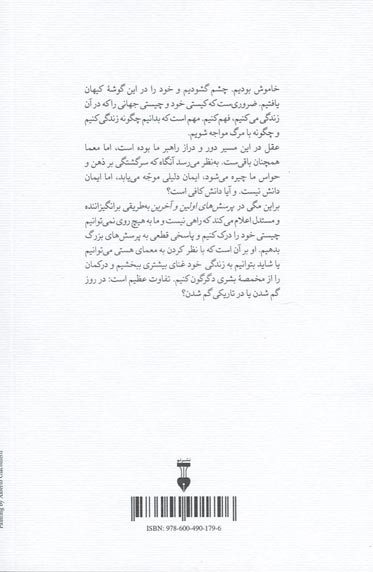 خاموش بودیم. چشم گشودیم و خود را در این گوشهٔ کیهان
یافتیم. ضروری‌ست که کیستی خود و چیستی جهانی را که در آن
زندگی می‌کنیم، فهم کنیم. مهم است که بدانیم چگونه زندگی کنیم
و چگونه با مرگ مواجه شویم.
عقل در این مسیر دور و دراز راهبر ما بوده است، اما معما
همچنان باقی‌ست. به‌نظر می‌رسد آنگاه که سرگشتگی بر ذهن و
حواس ما چیره می‌شود، ایمان دلیلی موجّه می‌یابد، اما ایمان
دانش نیست. و آیا دانش کافی است؟
براین مگی در پرسش‌های اولین و آخرین به‌طریقی برانگیزاننده
و مستدل اعلام می‌کند که راهی نیست و ما به هیچ روی نمی‌توانیم
چیستی خود را درک کنیم و پاسخی قطعی به پرسش‌های بزرگ
بدهیم. او بر آن است که با نظر کردن به معمای هستی می‌توانیم
یا شاید بتوانیم به زندگی خود غنای بیشتری ببخشیم و درکمان
را از مخمصهٔ بشری دگرگون کنیم. تفاوت عظیم است: در روز
گم شدن یا در تاریکی گم شدن؟
Painting by Alberto Giacometti
ISBN: 978-600-490-179-6